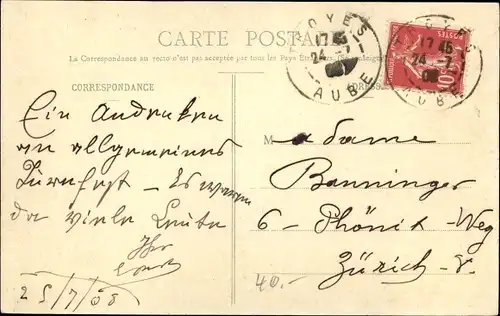 CARTE POSTALE
La Correspondance au recto n'est pas acceptée par tous les Pays Etrangers
CORRESPONDANCE
ADRESSE
TROYES
17 45
24 - 7
08
AUBE
17 45
24 - 7
AUBE
POSTES
10
Ein Andenken
an allgemeines
Turnfest - Es waren
da viele Leute
Ihr
25/7/08
Madame
Banninger
6 - Phönix - Weg
Zürich - V.
40.-